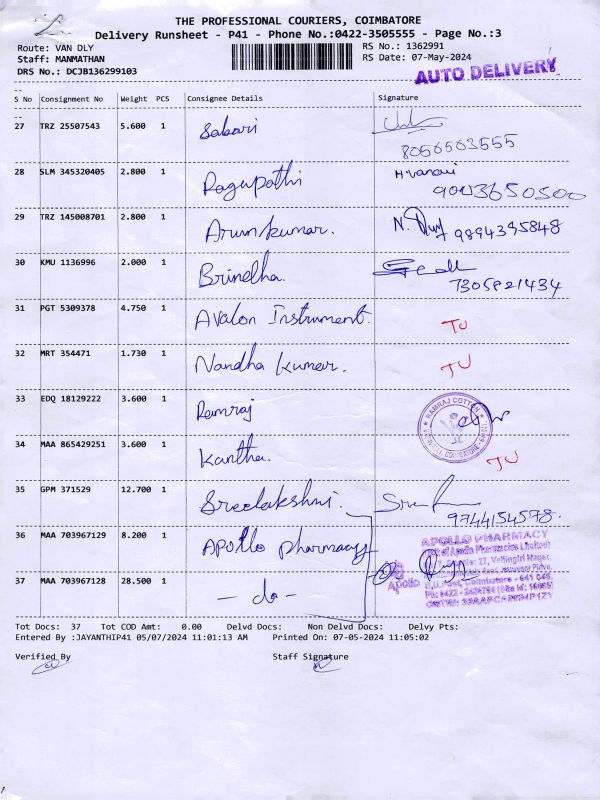 THE PROFESSIONAL COURIERS, COIMBATORE
Delivery Runsheet - P41 - Phone No.:0422-3505555 - Page No.:3
Route: VAN DLY
RS No.: 1362991
Staff: MANMATHAN
RS Date: 07-May-2024
DRS No.: DCJB136299103
AUTO DELIVERY
S No Consignment No Weight PCS Consignee Details Signature
27 TRZ 25507543 5.600 1 Sabari
8056503555
28 SLM 345320405 2.800 1 Ragupathi
9003650500
29 TRZ 145008701 2.800 1 Arunkumar. N. 9894395848
30 KMU 1136996 2.000 1 Brindha.
7305821434
31 PGT 5309378 4.750 1 Avalon Instrument. TU
32 MRT 354471 1.730 1 Nandha kumar. TU
33 EDQ 18129222 3.600 1 Ramraj
RAMRAJ COTTON
34 MAA 865429251 3.600 1 Kantha. TU
35 GPM 371529 12.700 1 Sreelakshmi.
9744154578.
36 MAA 703967129 8.200 1 Apollo pharmacy
APOLLO PHARMACY
37 MAA 703967128 28.500 1 - do -
Apollo
Tot Docs: 37 Tot COD Amt: 0.00 Delvd Docs: Non Delvd Docs: Delvy Pts:
Entered By :JAYANTHIP41 05/07/2024 11:01:13 AM Printed On: 07-05-2024 11:05:02
Verified By Staff Signature